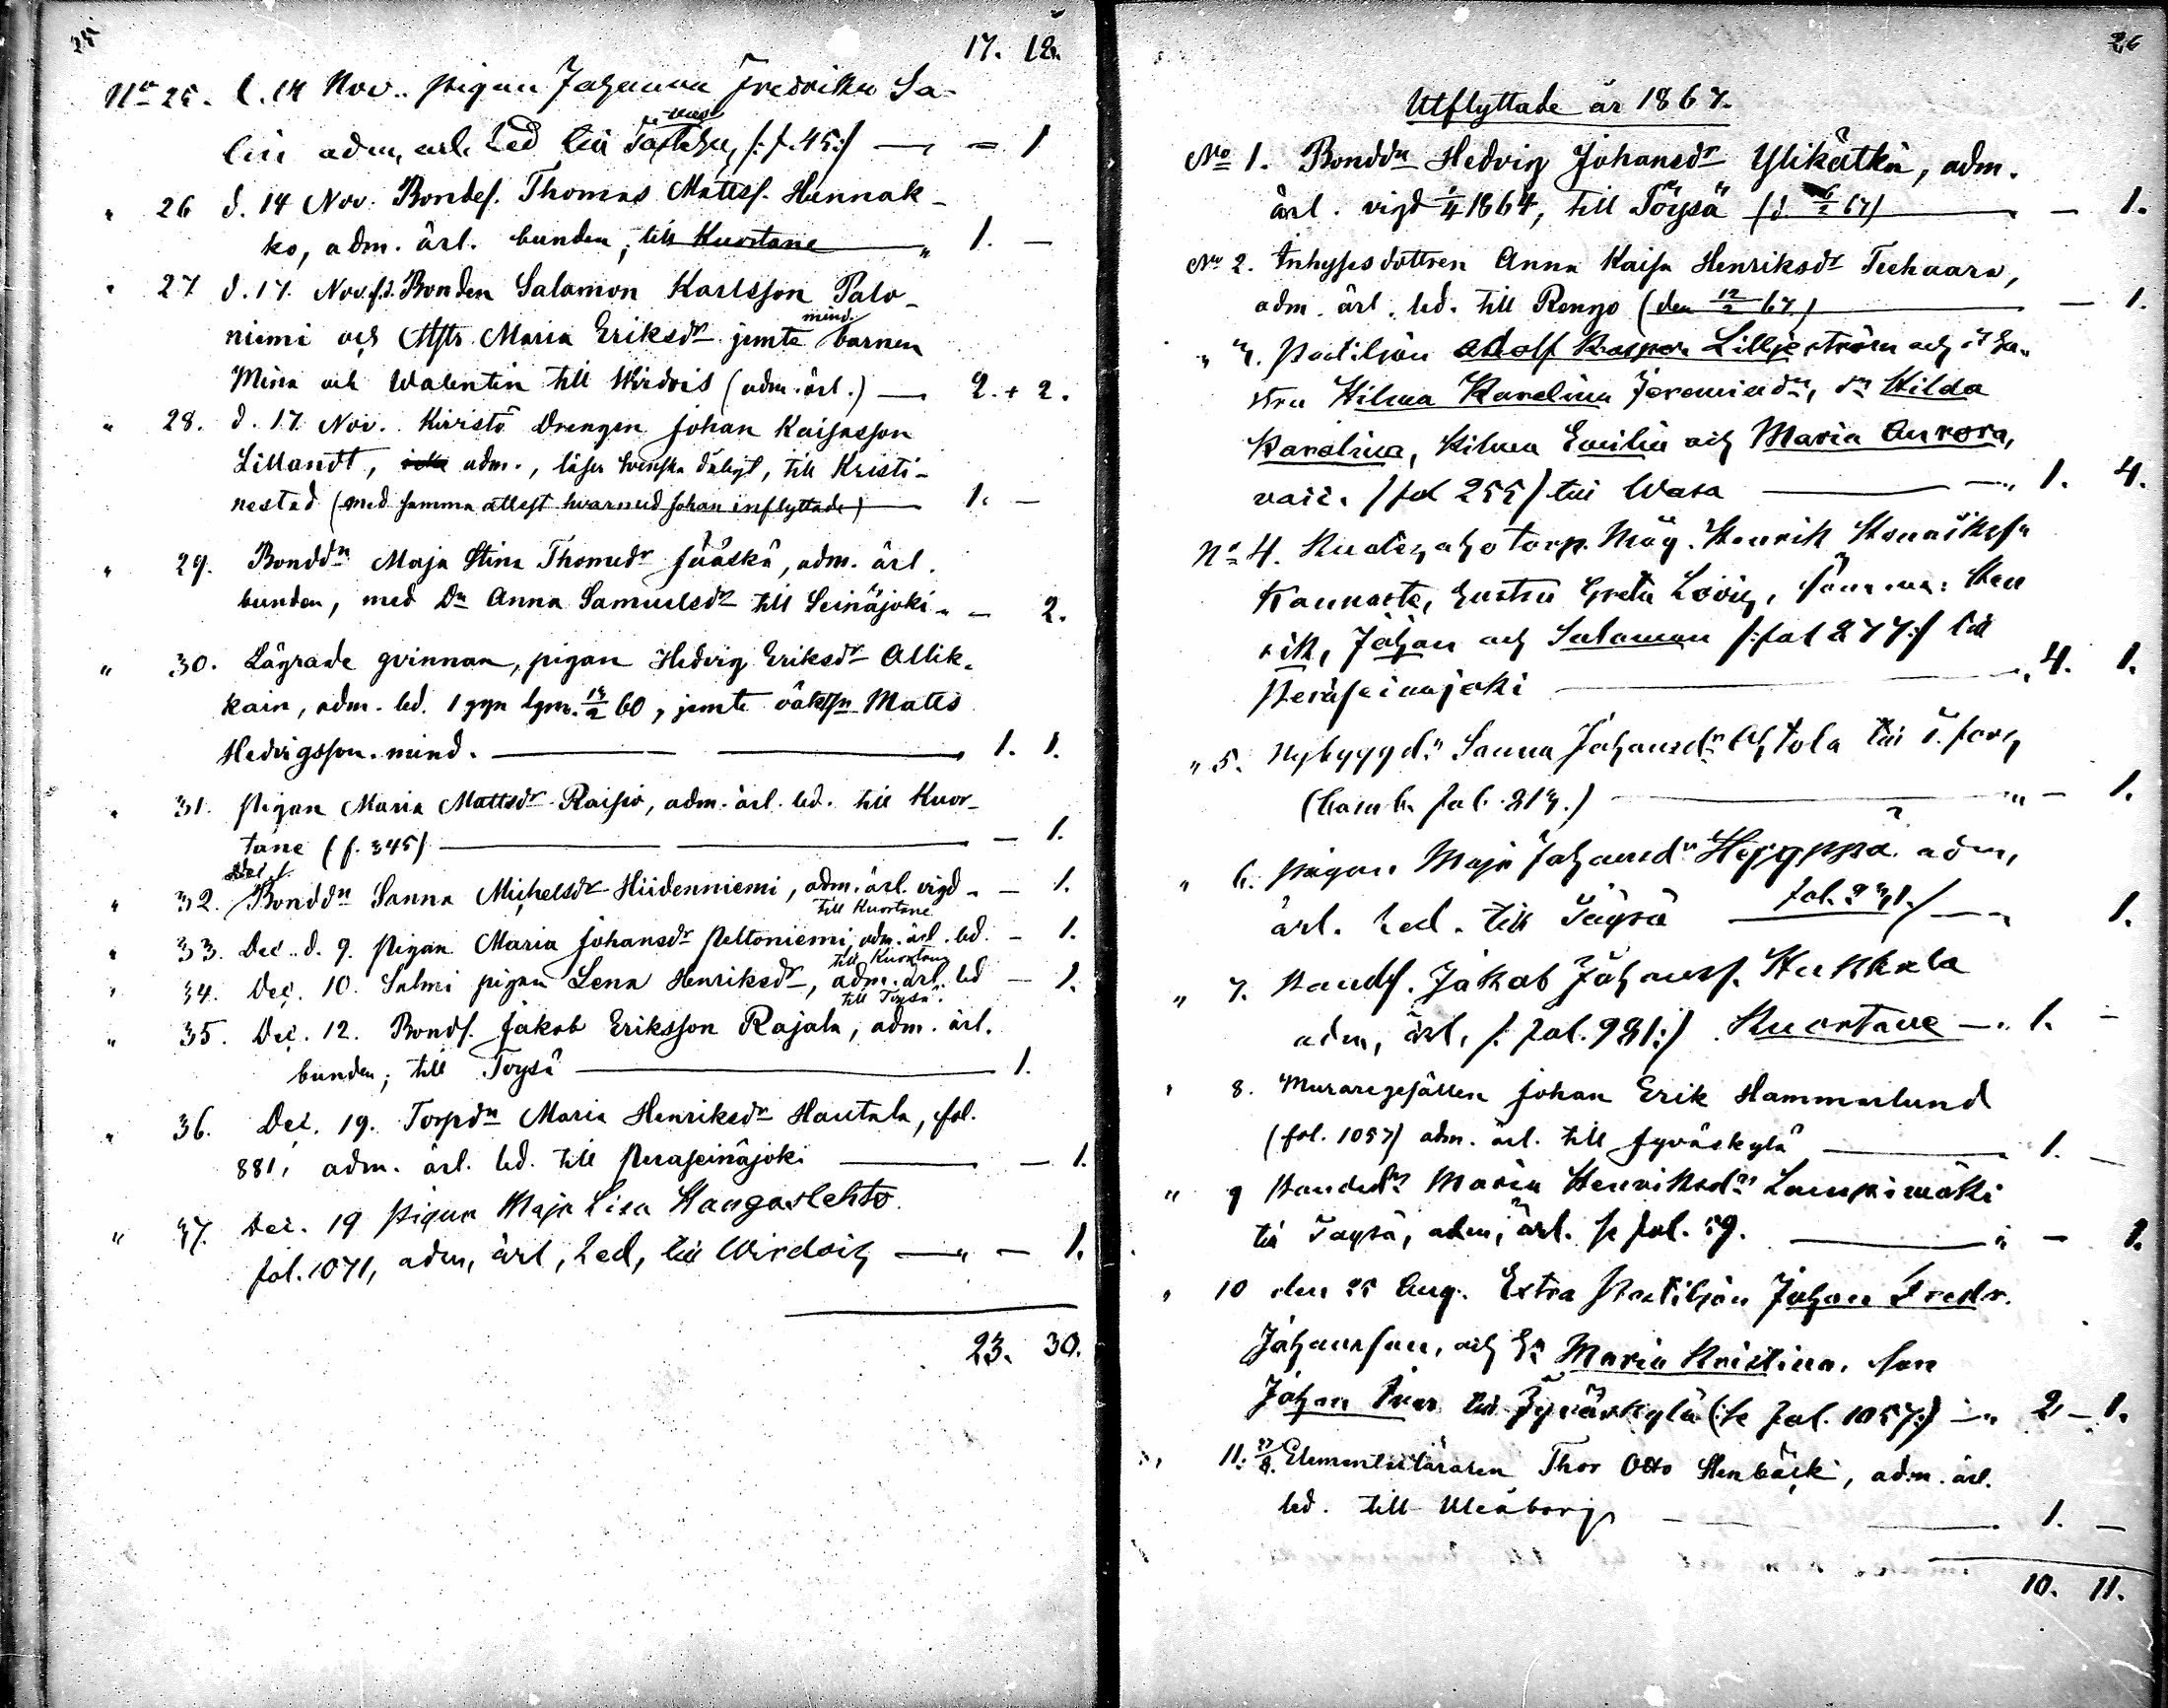 25
17. 18.
No 25. d. 14 Nov. pigan Johanna Fredrika Sa-
lin adm, ärl. Led till /: f. 45:/ — — 1
" 26 d. 14 Nov. Bondes. Thomas Mattss. Hunnak-
ko, adm. ärl. bunden, till Kuortane " 1. —
" 27 d. 17. Nov. f.d. Bonden Salamon Karlsson Palo-
mind.
niemi och Hstr. Maria Eriksdr jemte barnen
Mina och Walentin till Wirdois (adm. ärl.) — 2. + 2.
" 28. d. 17 Nov. Kiviistö Drengen Johan Kaisasson
Lillandt, adm., läser svenska dåligt, till Kristi-
nestad (med samma attest hvarmed Johan inflyttade) 1. —
" 29. Bonddn Maja Stina Thomasdr Jääskä, adm. ärl.
bunden, med Dn Anna Samuelsdr till Seinäjoki " — 2.
" 30. Lägrade qvinnan, pigan Hedvig Eriksdr Allik-
kain, adm. led. 1 ggn lgm. 60, jemte oäkta sn Matts
Hedvigsson. mind. — — 1. 1.
" 31. Pigan Maria Mattsdr Raisio, adm. ärl. led. till Kuor-
tane (f. 345) — — — 1.
" 32. Bonddn Sanna Michelsdr Hiidenniemi, adm. ärl. vigd — — 1.
till Kuortane
" 33. Dec. d. 9. Pigan Maria Johansdr Peltoniemi, adm. ärl. led. — 1.
till Kuortane
" 34. Dec. 10. Salmi pigan Lena Henriksdr, adm. ärl. led — 1.
till Töysä.
" 35. Dec. 12. Bonds. Jakob Eriksson Rajala, adm. ärl.
bunden; till Töysä — 1.
" 36. Dec. 19. Torpdn Maria Henriksdr Hautala, fol.
881, adm. ärl. led. till Peräseinäjoki — — 1.
" 37. Dec. 19 Pigan Maja Lisa Kangaslehto
fol. 1071, adm, ärl, Led, till Wirdois — " — 1.
23. 30.
26
Utflyttade år 1867.
No 1. Bonddn Hedvig Johansdr Ylikätkä, adm.
ärl. vigd 1864, till Töysä (d 6/2 67) — 1.
No 2. Inhysesdottren Anna Kaisa Henriksdr Teehaara,
adm. ärl. led. till Rengo (den 12/2 67) — 1.
" 3. Postiljon Adolf Kasper Lilljeström och Hu-
stru Hilma Karolina Jeremiadn, dn Hilda
Karolina, Hilma Emilia och Maria Aurora,
vacc. /fol 255/ till Wasa — " 1. 4.
No 4. Torp. Måg. Henrik Henrikss
Kannasto, hustru Greta Lovis, sönerna: Hen
rik, Johan och Salamon /: fol 277:/ till
Peräseinäjoki — " 4. 1.
" 5. Nybyggdn Sanna Johansdr Ahtola till
fol. 813.) — " — 1.
" 6. pigan Maja Johansdr adm,
ärl. Led. till Töysä fol. 231./ — " 1.
" 7. Bonds. Jakob Johanss. Hukkala
adm, ärl, /: fol. 981:/ Kuortane — " 1. —
" 8. Muraregesällen Johan Erik Hammarlund
(fol. 1057) adm. ärl. till Jyväskylä — 1. —
" 9 Bonddn Maria Henriksdr Lampimäki
till Töysä, adm, ärl. se fol. 59. — " — 1.
" 10 den 25 Aug. Extra Postiljon Johan Fredr.
Johansson, och H. Maria Kristina, son
Johan Ivar till Jyväskylä (:se fol. 1057:) — " 2 — 1.
" 11. Elementarläraren Thor Otto Stenbäck, adm. ärl.
led. till Uleåborg — — 1. —
10. 11.